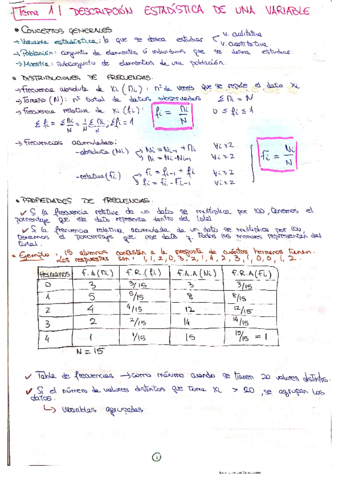 Tema 1 | DESCRIPCIÓN ESTADÍSTICA DE UNA VARIABLE
• CONCEPTOS GENERALES
→ Variante estadística: lo que se desea estudiar
v. cualitativa
v. cuantitativa
→ Población: conjunto de elementos o individuos que se desea estudiar
→ Muestra: subconjunto de elementos de una población.
• DISTRIBUCIONES DE FRECUENCIAS.
→ Frecuencia absoluta de Xi (ni): nº de veces que se repite el dato Xi
→ Tamaño (N): nº total de datos observados Σ ni = N
→ Frecuencia relativa de Xi (fi): fi = ni/N 0 ≤ fi ≤ 1
Σ fi = Σ ni/N = N/N, Σ fi = 1
→ Frecuencias acumuladas:
- absoluta (Ni) → Ni = Ni-1 + ni ∀i > 2
ni = Ni - Ni-1 ∀i > 2
Fi = Ni/N
- relativa (Fi) → Fi = Fi-1 + fi ∀i > 2
fi = Fi - Fi-1 ∀i > 2
• PROPIEDADES DE FRECUENCIAS.
✓ Si la frecuencia relativa de un dato se multiplica por 100, tenemos el
porcentaje que ese dato representa dentro del total
✓ Si la frecuencia relativa acumulada de un dato se multiplica por 100,
tenemos el porcentaje que ese dato y todos los menores representan del
total.
• Ejemplo: 15 alumnos contestan a la pregunta de cuántos hermanos tienen.
Las respuestas son: 1, 1, 2, 0, 3, 2, 1, 4, 2, 3, 1, 0, 0, 1, 2
Hermanos F.A (ni) F.R (fi) F.A.A (Ni) F.R.A (Fi)
0 3 3/15 3 3/15
1 5 5/15 8 8/15
2 4 4/15 12 12/15
3 2 2/15 14 14/15
4 1 1/15 15 15/15 = 1
N = 15
✓ Tabla de frecuencias → como máximo cuando se tienen 20 valores distintos.
✓ Si el número de valores distintos que toma Xi > 20, se agrupan los
datos.
↳ Variables agrupadas
1